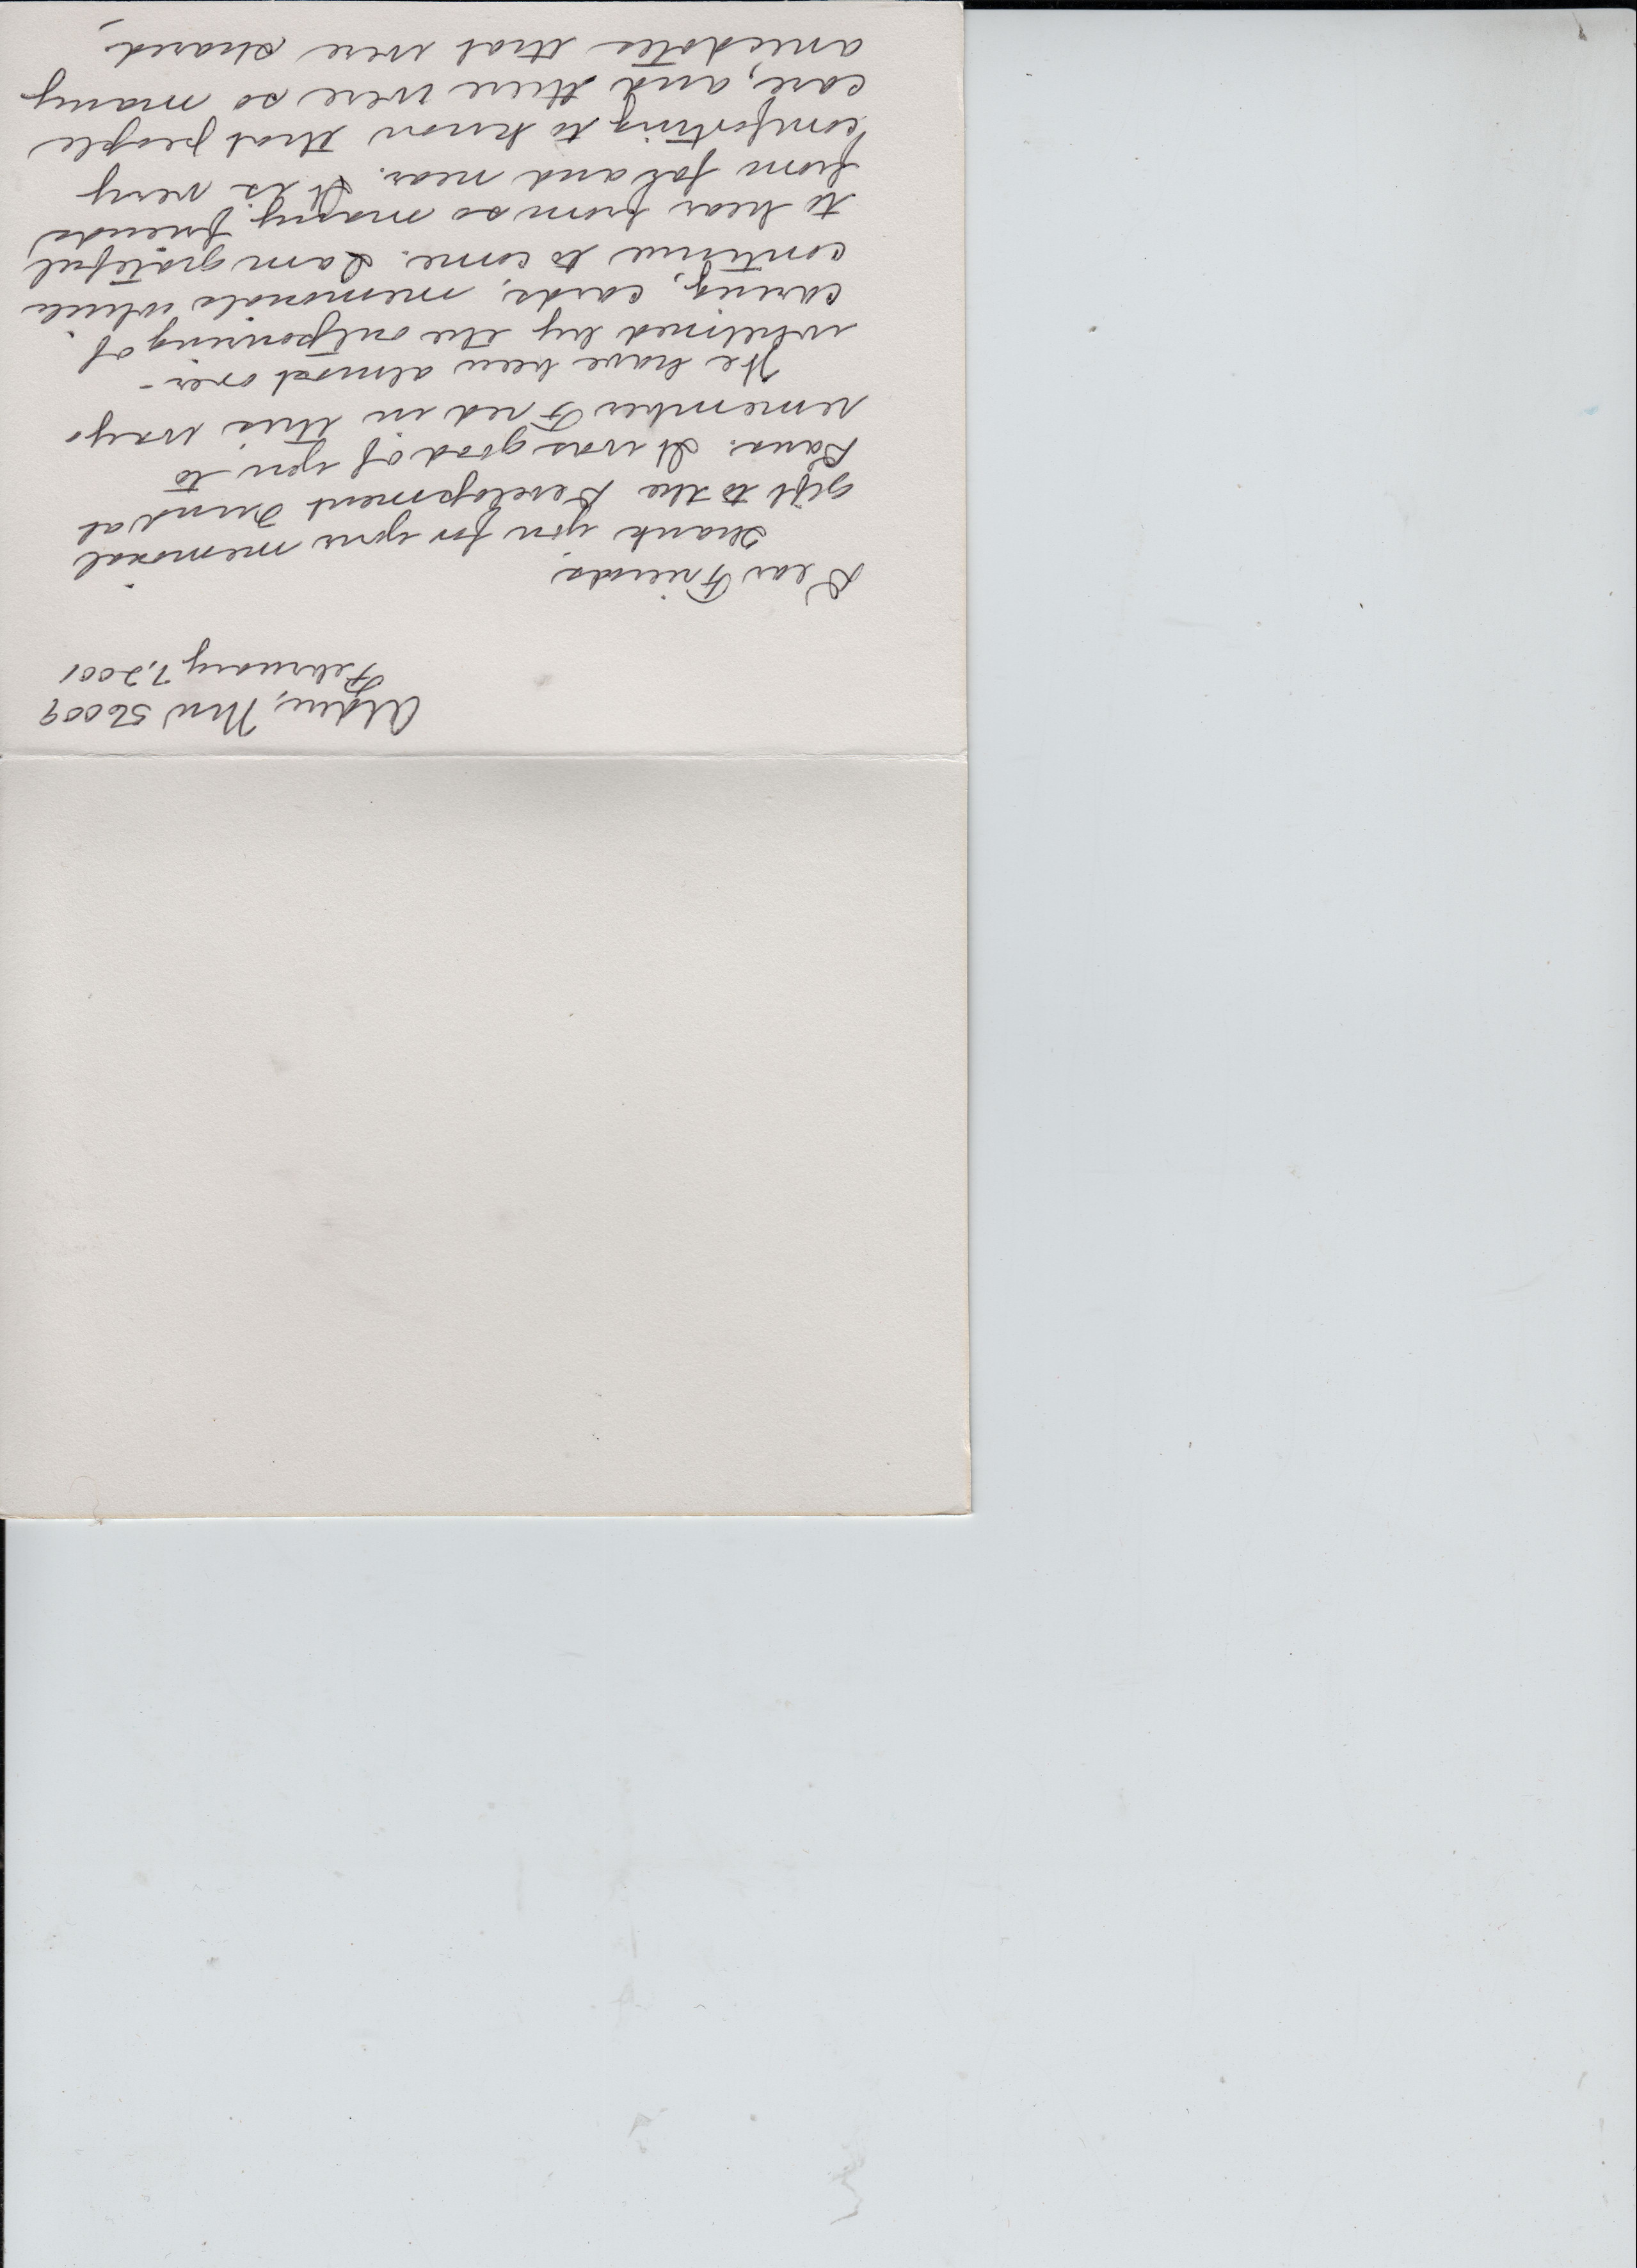 Alden, Mn 56009
February 7, 2001
Dear Friends
Thank you for your memorial
gift to the Development Fund at
Rans. It was good of you to
remember Fred in this way.
We have been almost over-
whelmed by the outpouring of
caring, cards, memorials which
continue to come. I am grateful
to hear from so many friends
from far and near. It is very
comforting to know that people
care, and there were so many
anecdotes that were shared.